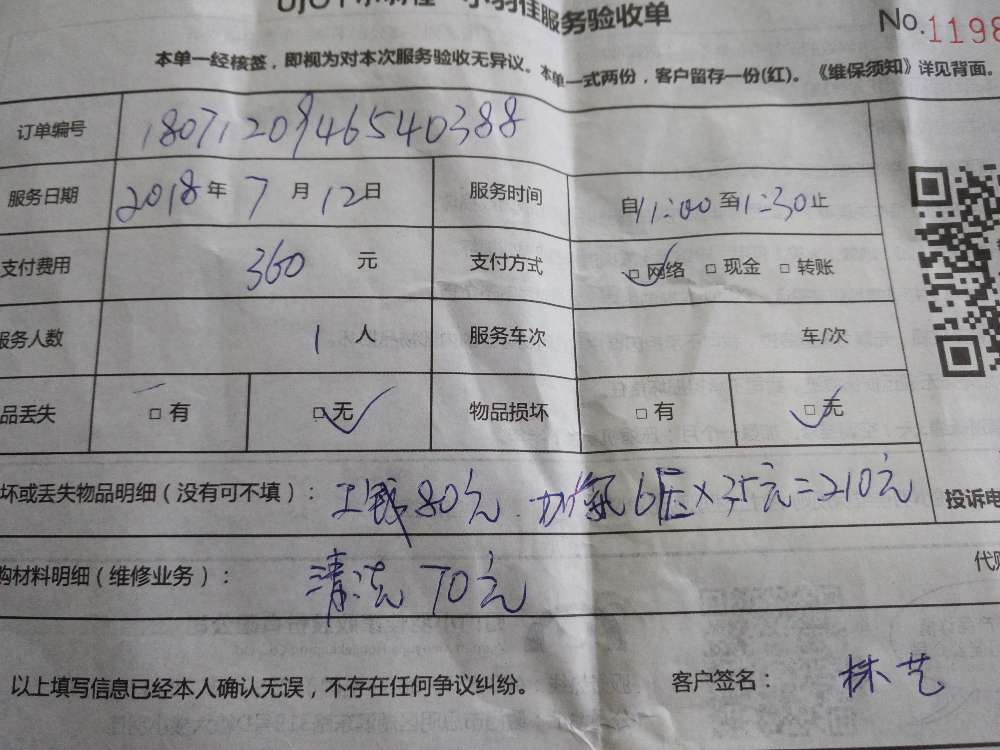 服务验收单
No.1198
本单一经核签，即视为对本次服务验收无异议。本单一式两份，客户留存一份(红)。《维保须知》详见背面。
订单编号 1807120946540388
服务日期 2018年7月12日 服务时间 自11:00至11:30止
支付费用 360元 支付方式 □网络 □现金 □转账
服务人数 1人 服务车次 车/次
品丢失 □有 □无 物品损坏 □有 □无
坏或丢失物品明细（没有可不填）： 工钱80元 加氟6压×35元=210元
投诉电
购材料明细（维修业务）： 清洗70元
代购
以上填写信息已经本人确认无误，不存在任何争议纠纷。 客户签名：